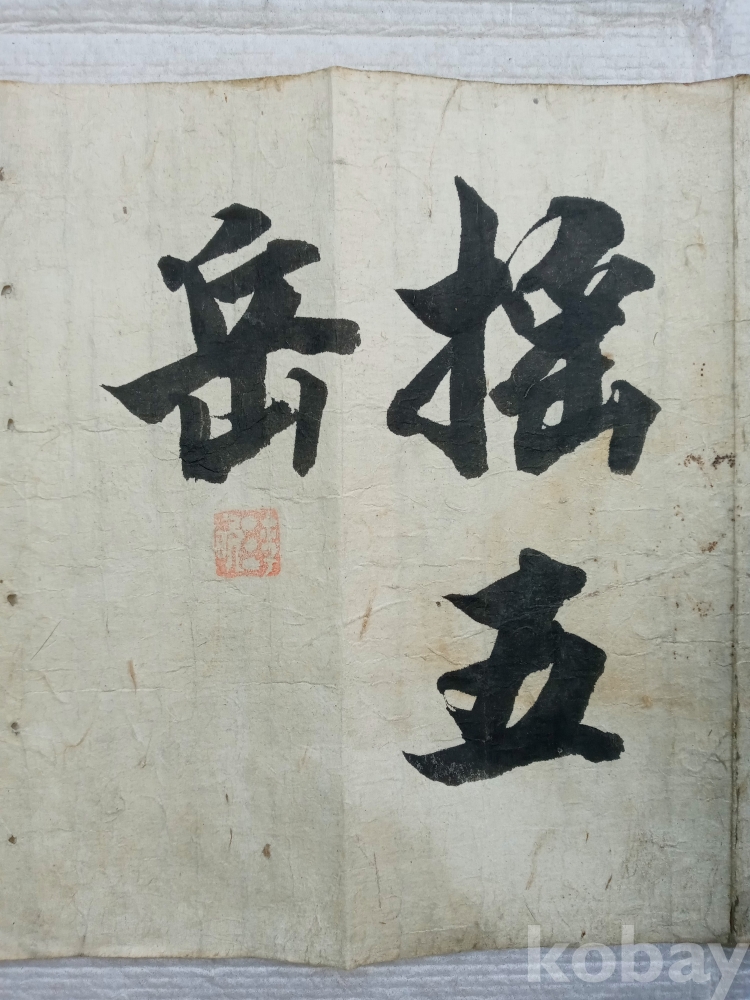 搖五
岳
kobay